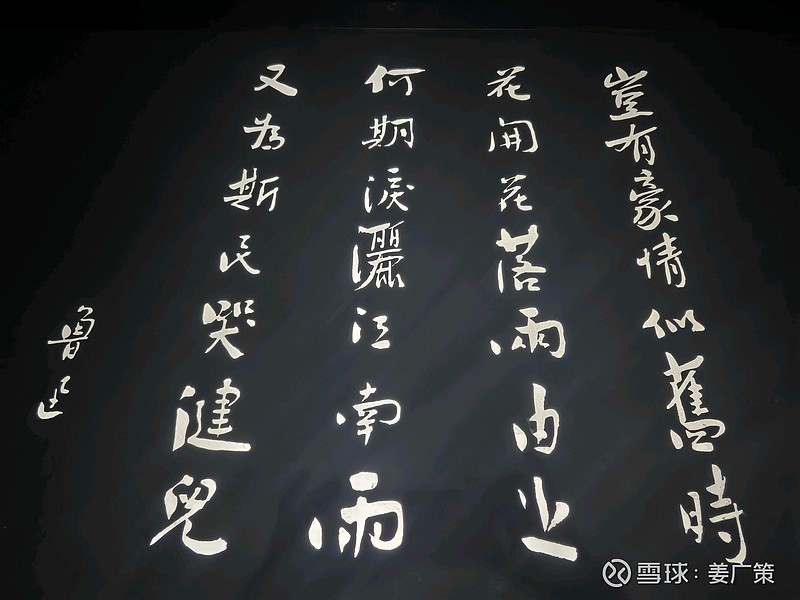 豈有豪情似舊時
花開花落兩由之
何期淚灑江南雨
又為斯民哭健兒
魯迅
雪球：姜广策